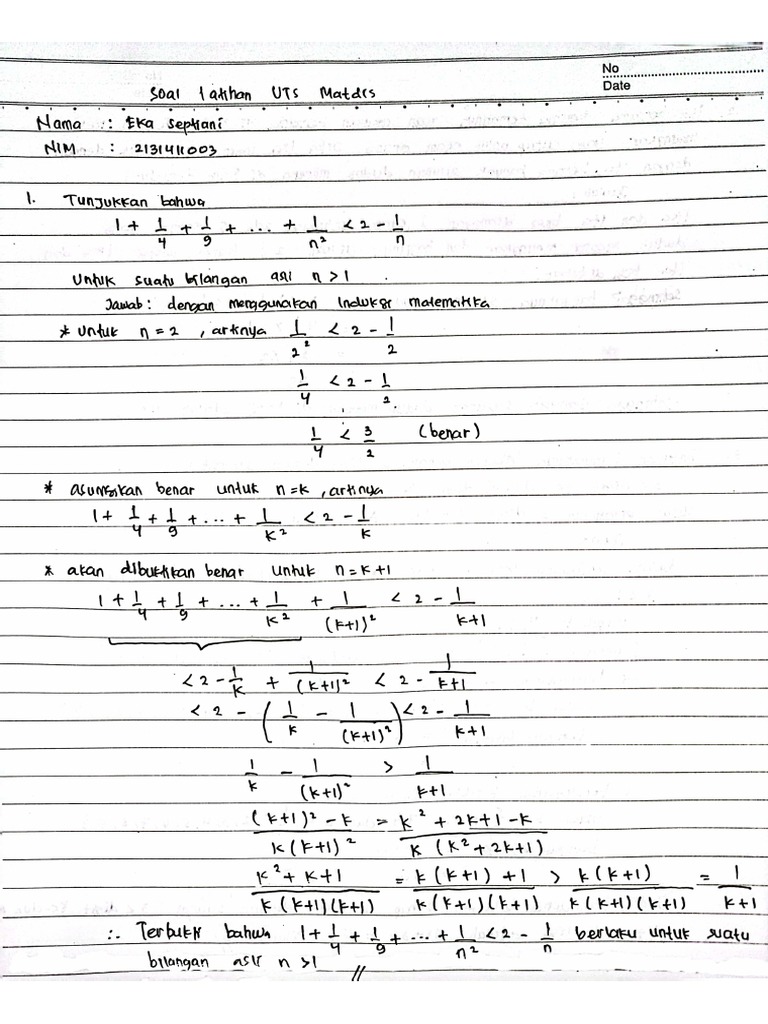 No
Date
Soal latihan UTS Matdis
Nama : Eka Septiani
NIM : 2131411003
1. Tunjukkan bahwa
1 + 1/4 + 1/9 + ... + 1/n² < 2 - 1/n
Untuk suatu bilangan asli n > 1.
Jawab : dengan menggunakan Induksi matematika
* Untuk n = 2 , artinya 1/2² < 2 - 1/2
1/4 < 2 - 1/2
1/4 < 3/2 (benar)
* asumsikan benar untuk n = k , artinya
1 + 1/4 + 1/9 + ... + 1/k² < 2 - 1/k
* akan dibuktikan benar untuk n = k+1
1 + 1/4 + 1/9 + ... + 1/k² + 1/(k+1)² < 2 - 1/k+1
< 2 - 1/k + 1/(k+1)² < 2 - 1/k+1
< 2 - (1/k - 1/(k+1)²) < 2 - 1/k+1
1/k - 1/(k+1)² > 1/k+1
(k+1)² - k / k(k+1)² = k² + 2k+1 - k / k (k² + 2k+1)
k² + k+1 / k(k+1)(k+1) = k(k+1) + 1 / k(k+1)(k+1) > k(k+1) / k(k+1)(k+1) = 1/k+1
∴ Terbukti bahwa 1 + 1/4 + 1/9 + ... + 1/n² < 2 - 1/n berlaku untuk suatu
bilangan asli n > 1 //